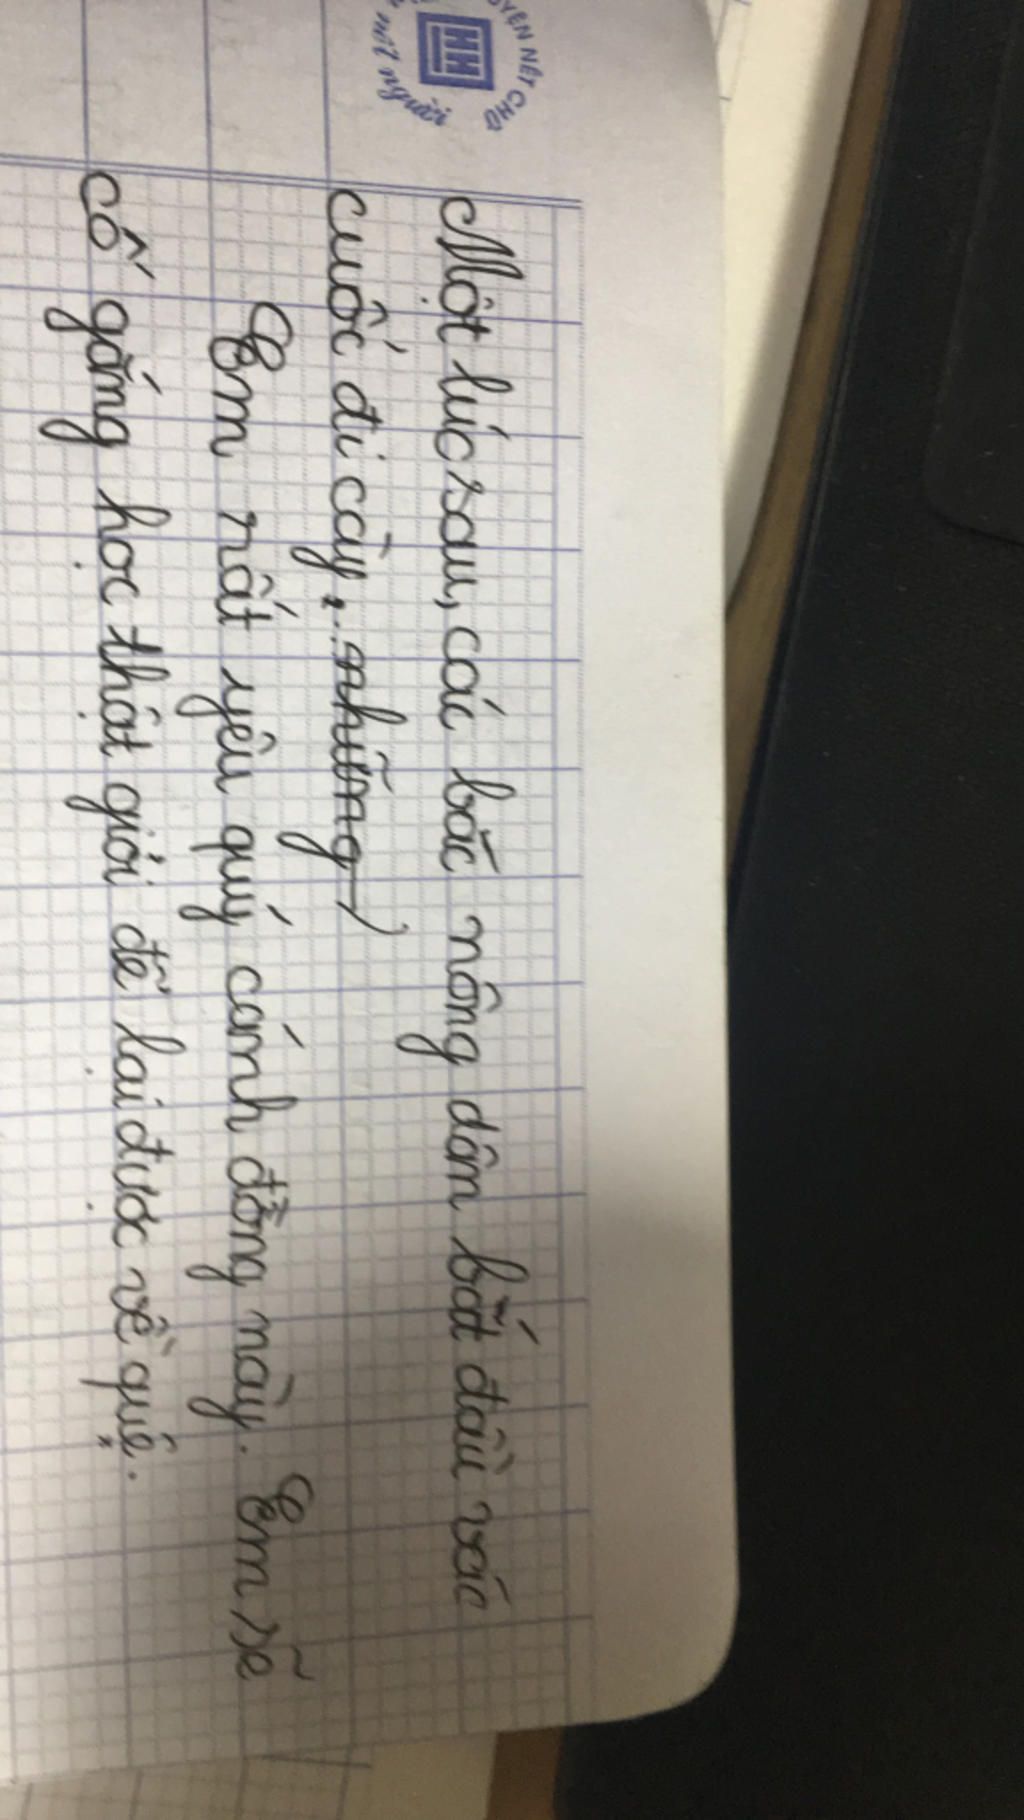 YỆN NẾT CHỮ
HH
nết người
Một lúc sau, các bắc nông dân bắt đầu vác
cuốc đi cày, những
Em rất yêu quý cánh đồng này. Em sẽ
cố gắng học thật giỏi để lại được về quê.